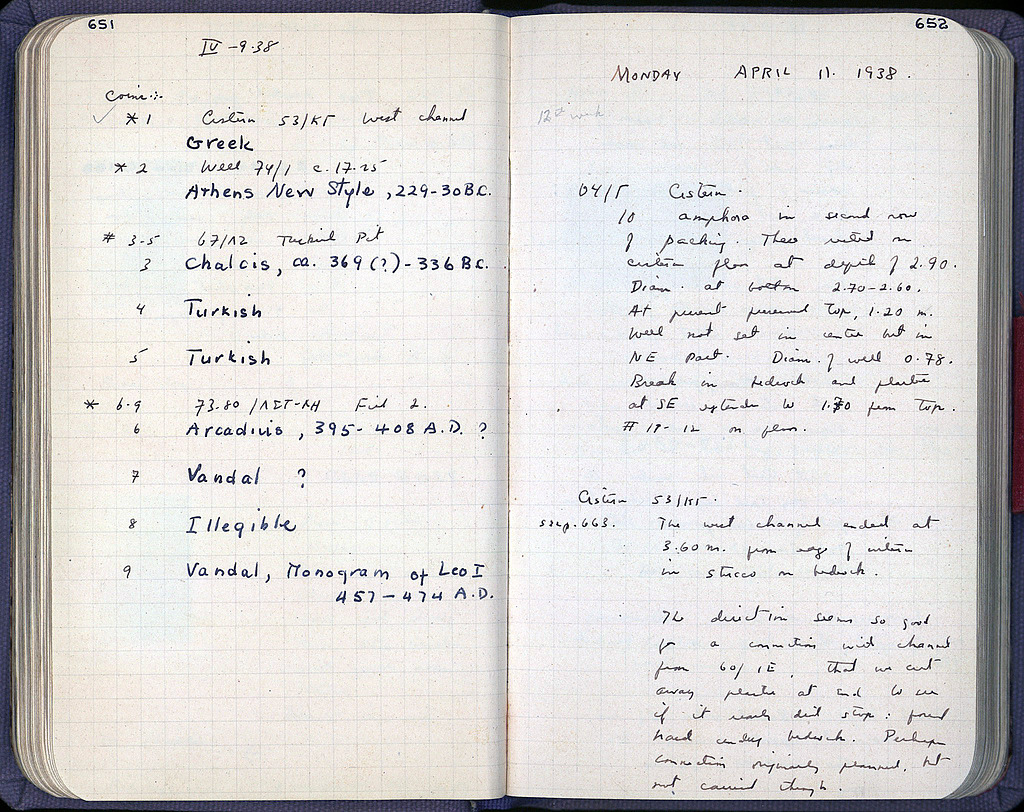 651
IV - 9.38
Coins:
* 1 Cistern 53/ΚΓ west channel
Greek
* 2 Well 74/1 c. 17.25
Athens New Style, 229-30 B.C.
# 3-5 67/ Turkish Pit
3 Chalcis, ca. 369 (?) - 336 B.C.
4 Turkish
5 Turkish
* 6-9 73.80 / 2.
6 Arcadius, 395-408 A.D. ?
7 Vandal ?
8 Illegible
9 Vandal, Monogram of Leo I
457-474 A.D.
652
MONDAY APRIL 11. 1938.
12th week
Cistern.
10 amphora in second row
of packing. These rested on
cistern floor at depth of 2.90.
Diam. at bottom 2.70-2.60.
At present preserved top, 1.20 m.
Well not set in centre but in
NE part. Diam. of well 0.78.
Break in bedrock and plaster
at SE extends to from top.
on floor.
Cistern 53/ΚΓ.
see p. 663. The west channel ended at
3.60 m. from edge of cistern
in stucco on bedrock.
The direction seems so good
for a connection with channel
from 60/ΙΕ, that we cut
away plaster at end to see
if it really did stop: found
hard bedrock. Perhaps
connection originally planned, but
not carried through.